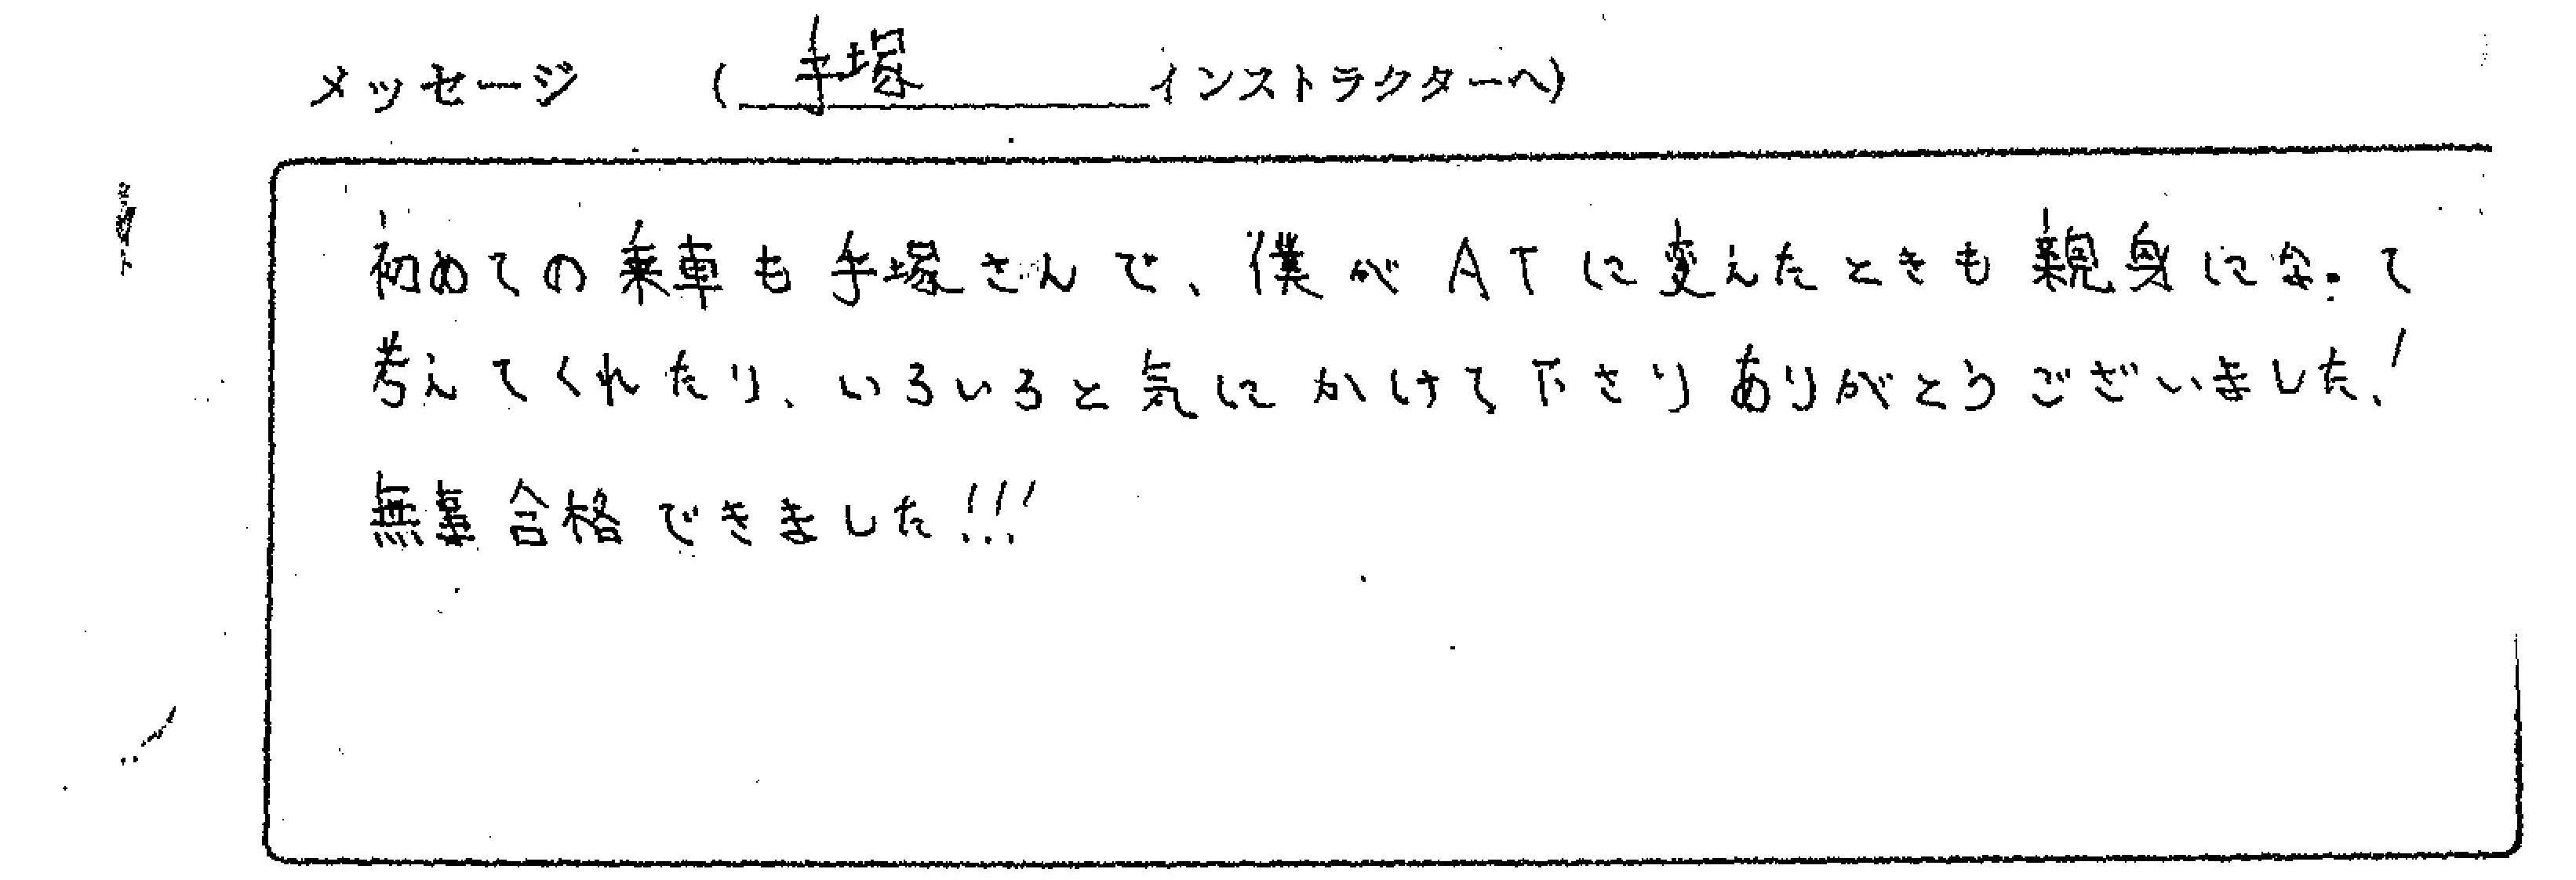 メッセージ (手塚インストラクターへ)
初めての乗車も手塚さんで、僕がATに変えたときも親身になって
考えてくれたり、いろいろと気にかけて下さりありがとうございました!
無事合格できました!!!